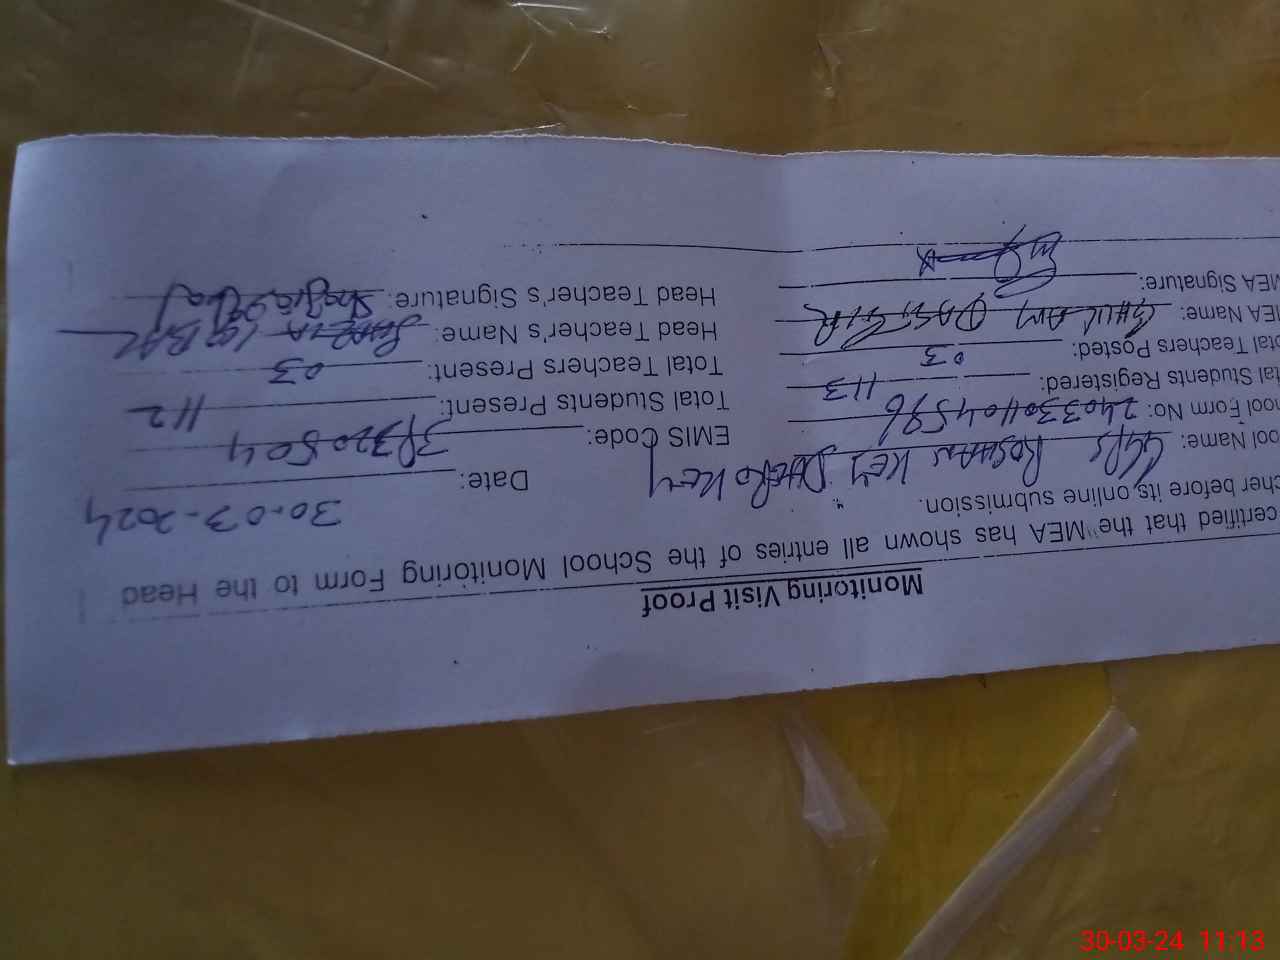 Monitoring Visit Proof
certified that the "MEA" has shown all entries of the School Monitoring Form to the Head
cher before its online submission.
Date: 30.03-2024
ool Name: GGPS ROSHAN KEY DHERO KEY
EMIS Code: 39320504
hool Form No: 2403301104596
Total Students Present: 112
tal Students Registered: 113
Total Teachers Present: 03
otal Teachers Posted: 03
Head Teacher's Name: SHAZIA IQBAL
MEA Name: GHULAM DASTGIR
Head Teacher's Signature: Shazia Iqbal
MEA Signature:
30-03-24 11:13